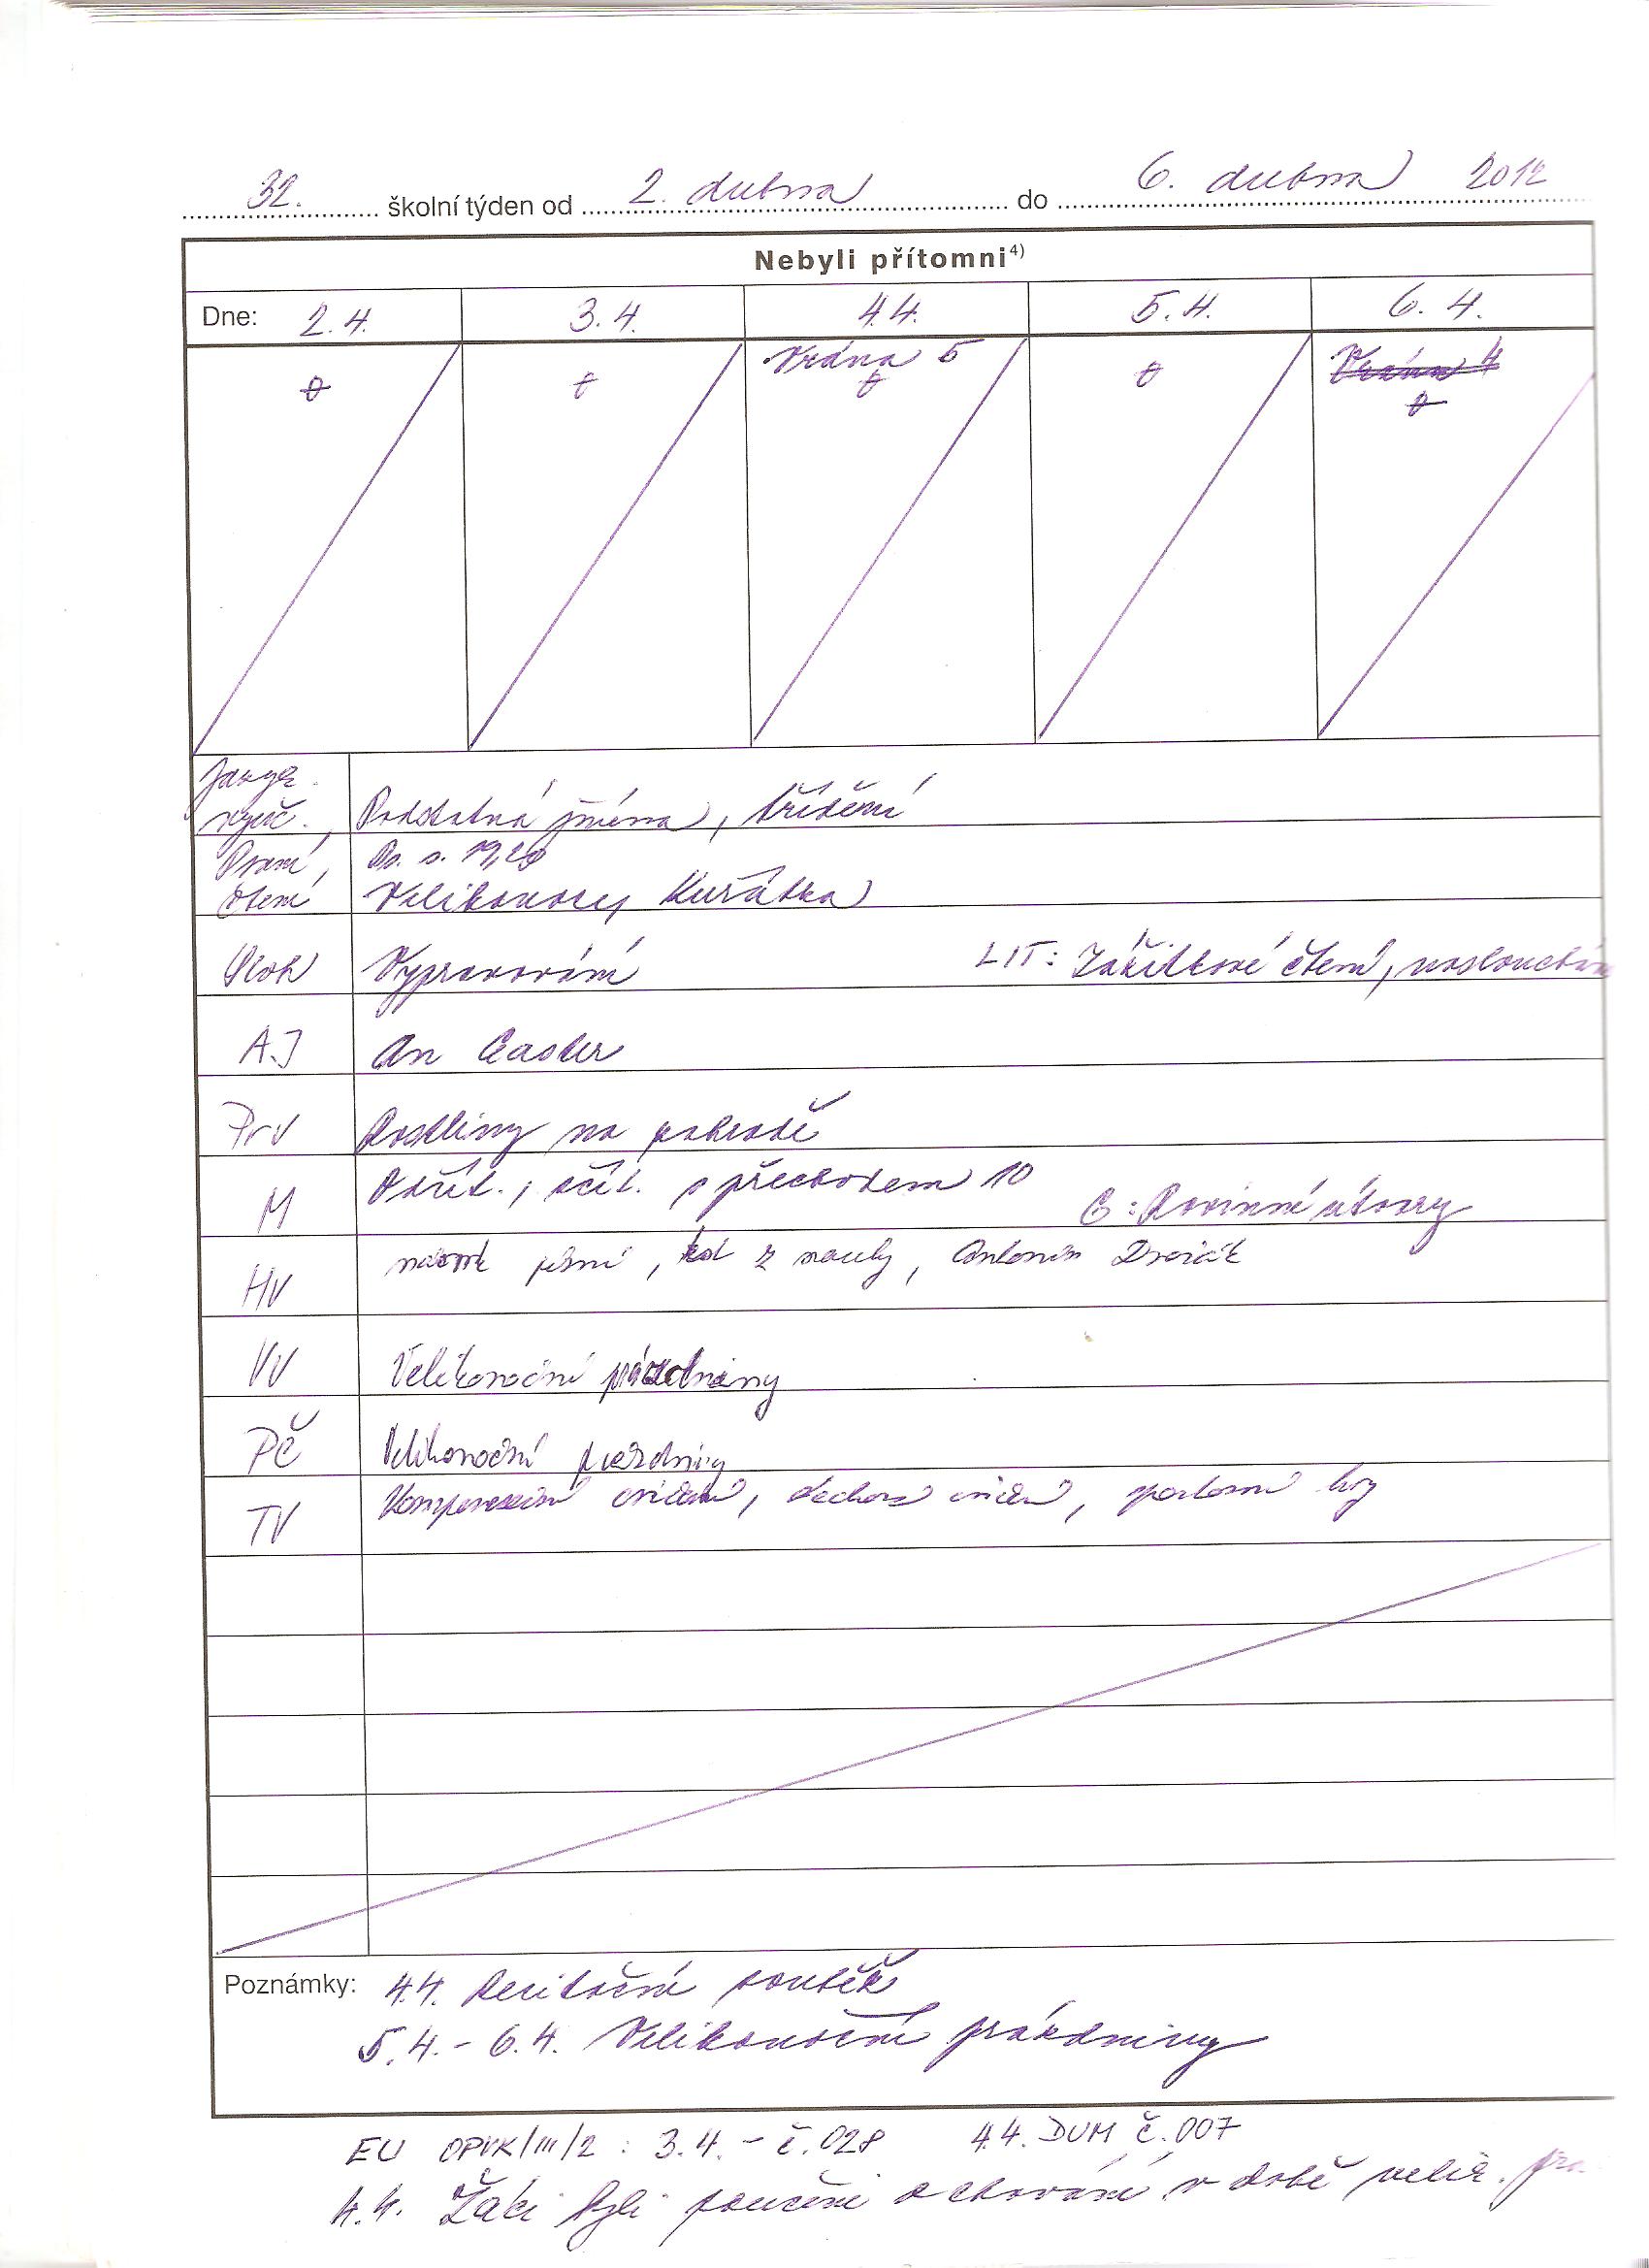 32. školní týden od 2. dubna do 6. dubna 2012
Nebyli přítomni4)
Dne: 2.4. 3.4. 4.4. 5.4. 6.4.
Vrána 5
Jazyk.
vyuč. Podstatná jména, třídění
Psaní, Ps. s. 19, 20
čtení Velikonoce, Kuřátka
Sloh Vypravování LIT: Zážitkové čtení, naslouchání
AJ An Easter
Prv Rostliny na zahradě
M Odčít., sčít. s přechodem 10 G: Rovinné útvary
HV nácvik písní, z nauky, Antonín Dvořák
VV Velikonoční prázdniny
PČ Velikonoční prázdniny
TV Kompenzační cvičení, dechová cvičení, sportovní hry
Poznámky: 4.4. Recitační soutěž
5.4. - 6.4. Velikonoční prázdniny
EU OPVK/III/2 : 3.4. - č. 028 4.4. DUM č. 007
4.4. Žáci byli poučeni o chování v době velik.